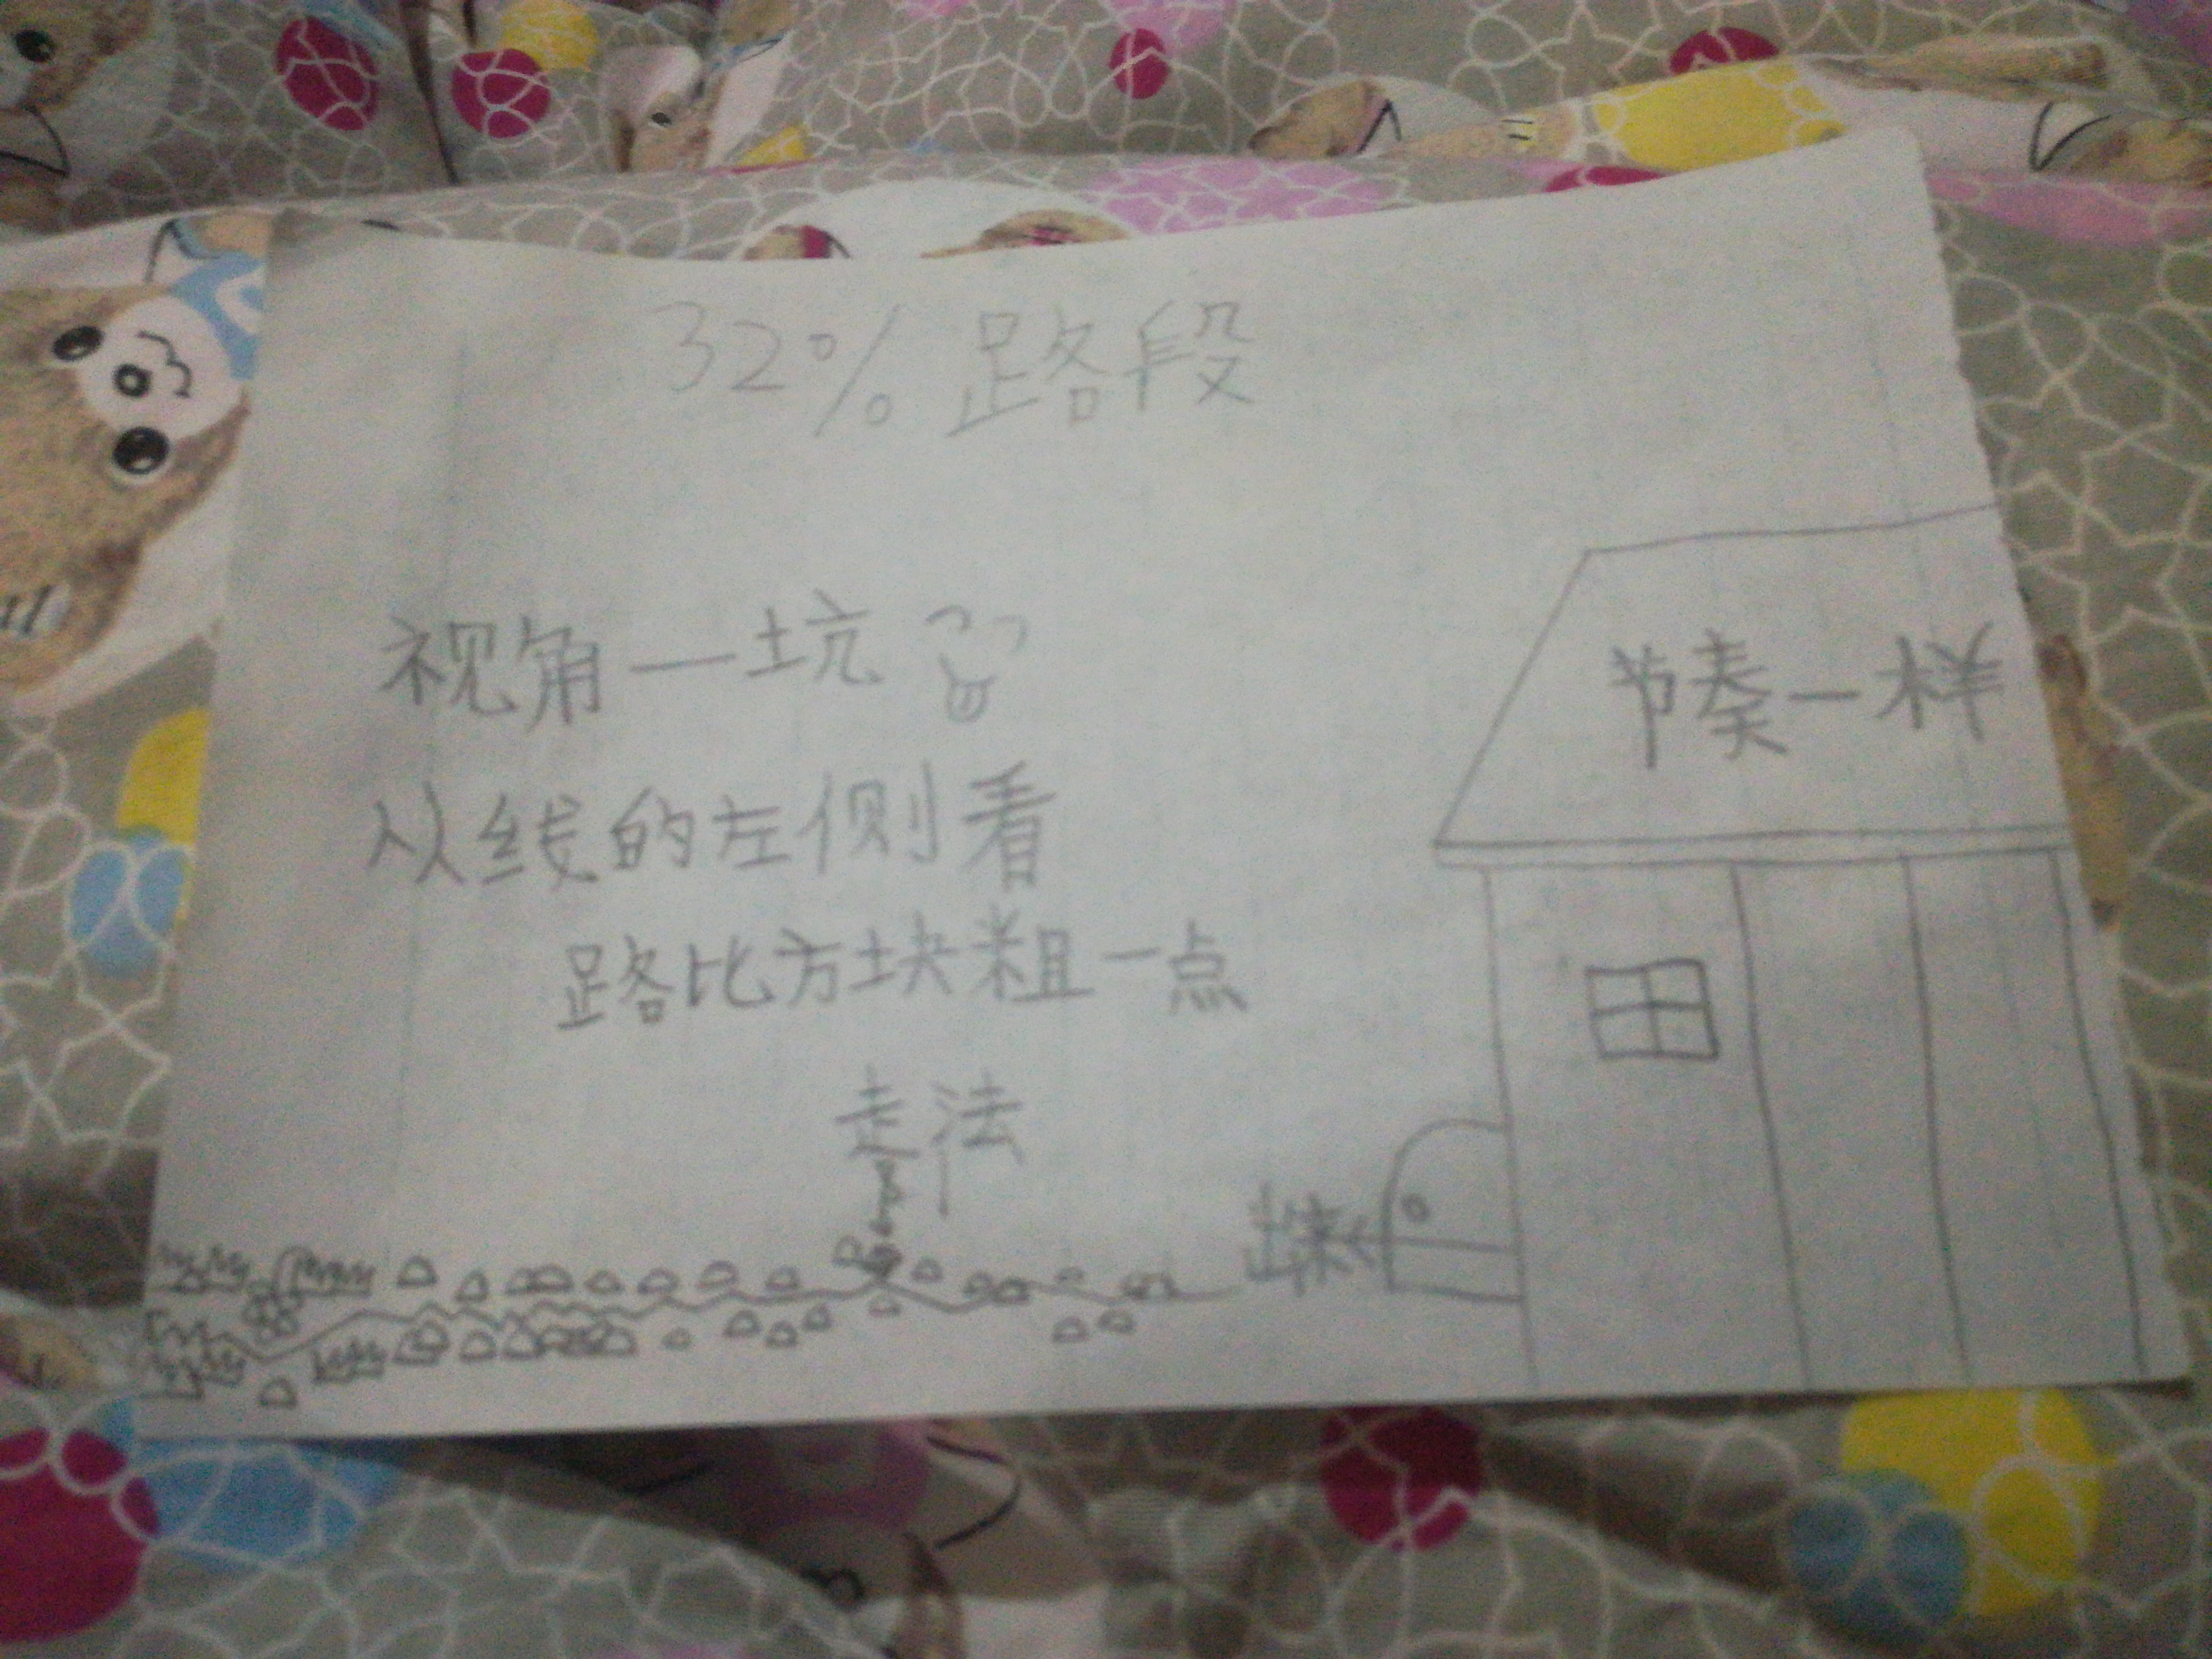 32% 路段
视角—坑
从线的左侧看
路比方块粗一点
走法
节奏一样
出来